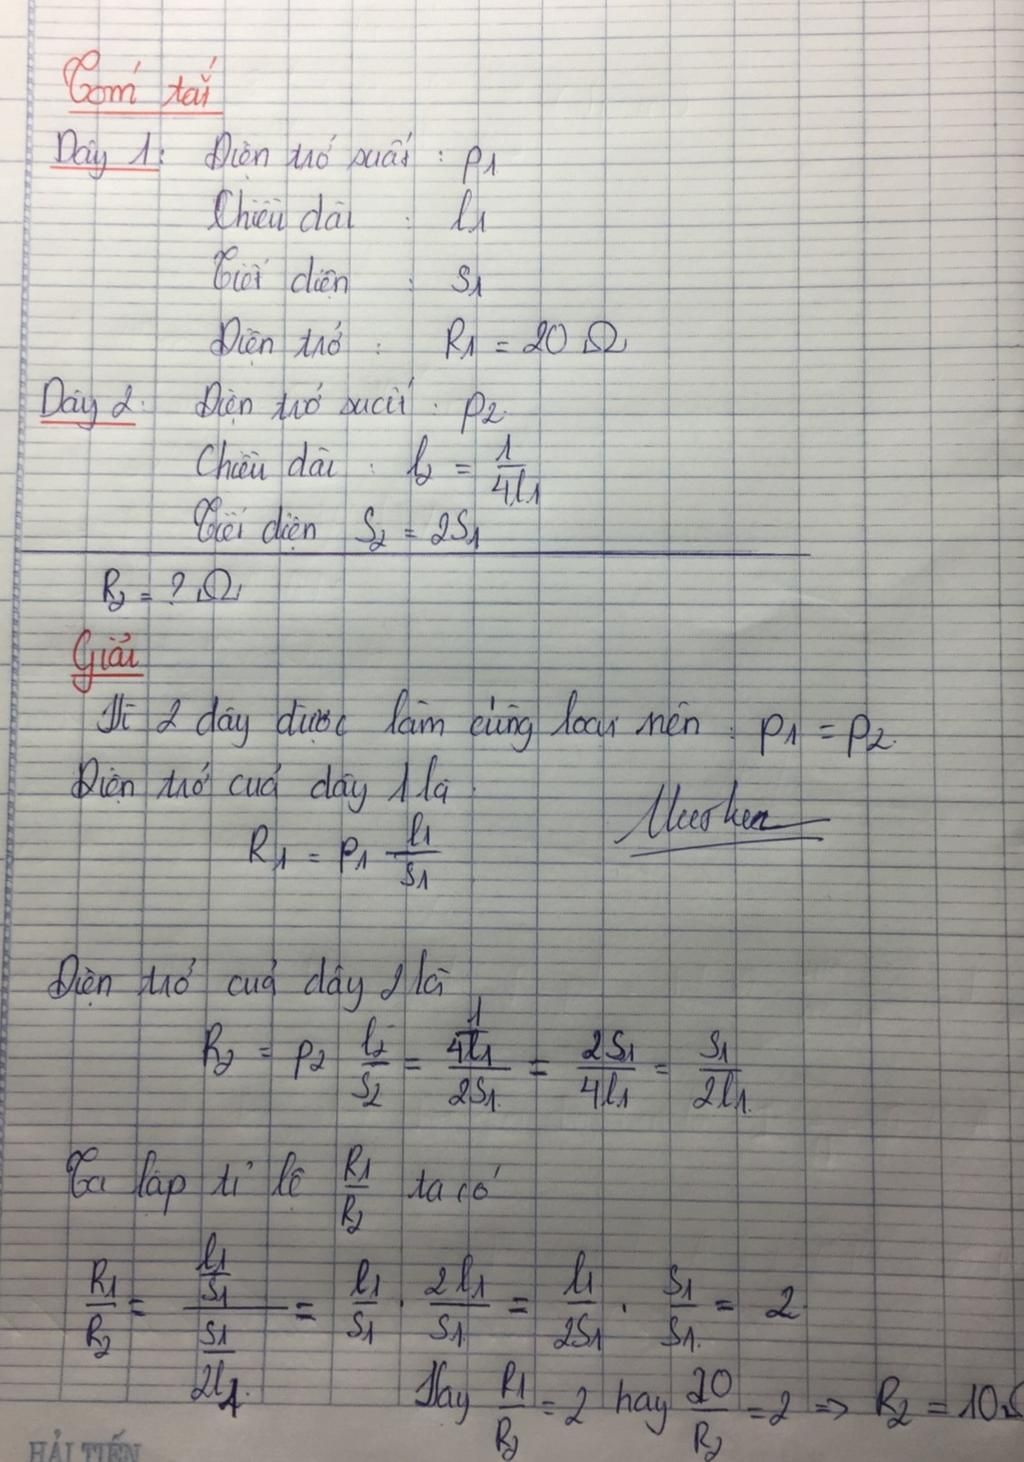 Tóm tắt
Dây 1: Điện trở suất : ρ1
Chiều dài : l1
Tiết diện : S1
Điện trở : R1 = 20 Ω
Dây 2: Điện trở suất : ρ2
Chiều dài : l2 = 1/4l1
Tiết diện S2 = 2S1
R2 = ? Ω
Giải
Vì 2 dây được làm cùng loại nên : ρ1 = ρ2.
Điện trở của dây 1 là
R1 = ρ1 l1/S1
Điện trở của dây 2 là
R2 = ρ2 l2/S2 = (1/4l1)/2S1 = 2S1/4l1 = S1/2l1
Ta lập tỉ lệ R1/R2 ta có
R1/R2 = (l1/S1)/(S1/2l1) = l1/S1 . 2l1/S1 = l1/2S1 . S1/S1 = 2
Hay R1/R2 = 2 hay 20/R2 = 2 => R2 = 10Ω
HẢI TIẾN